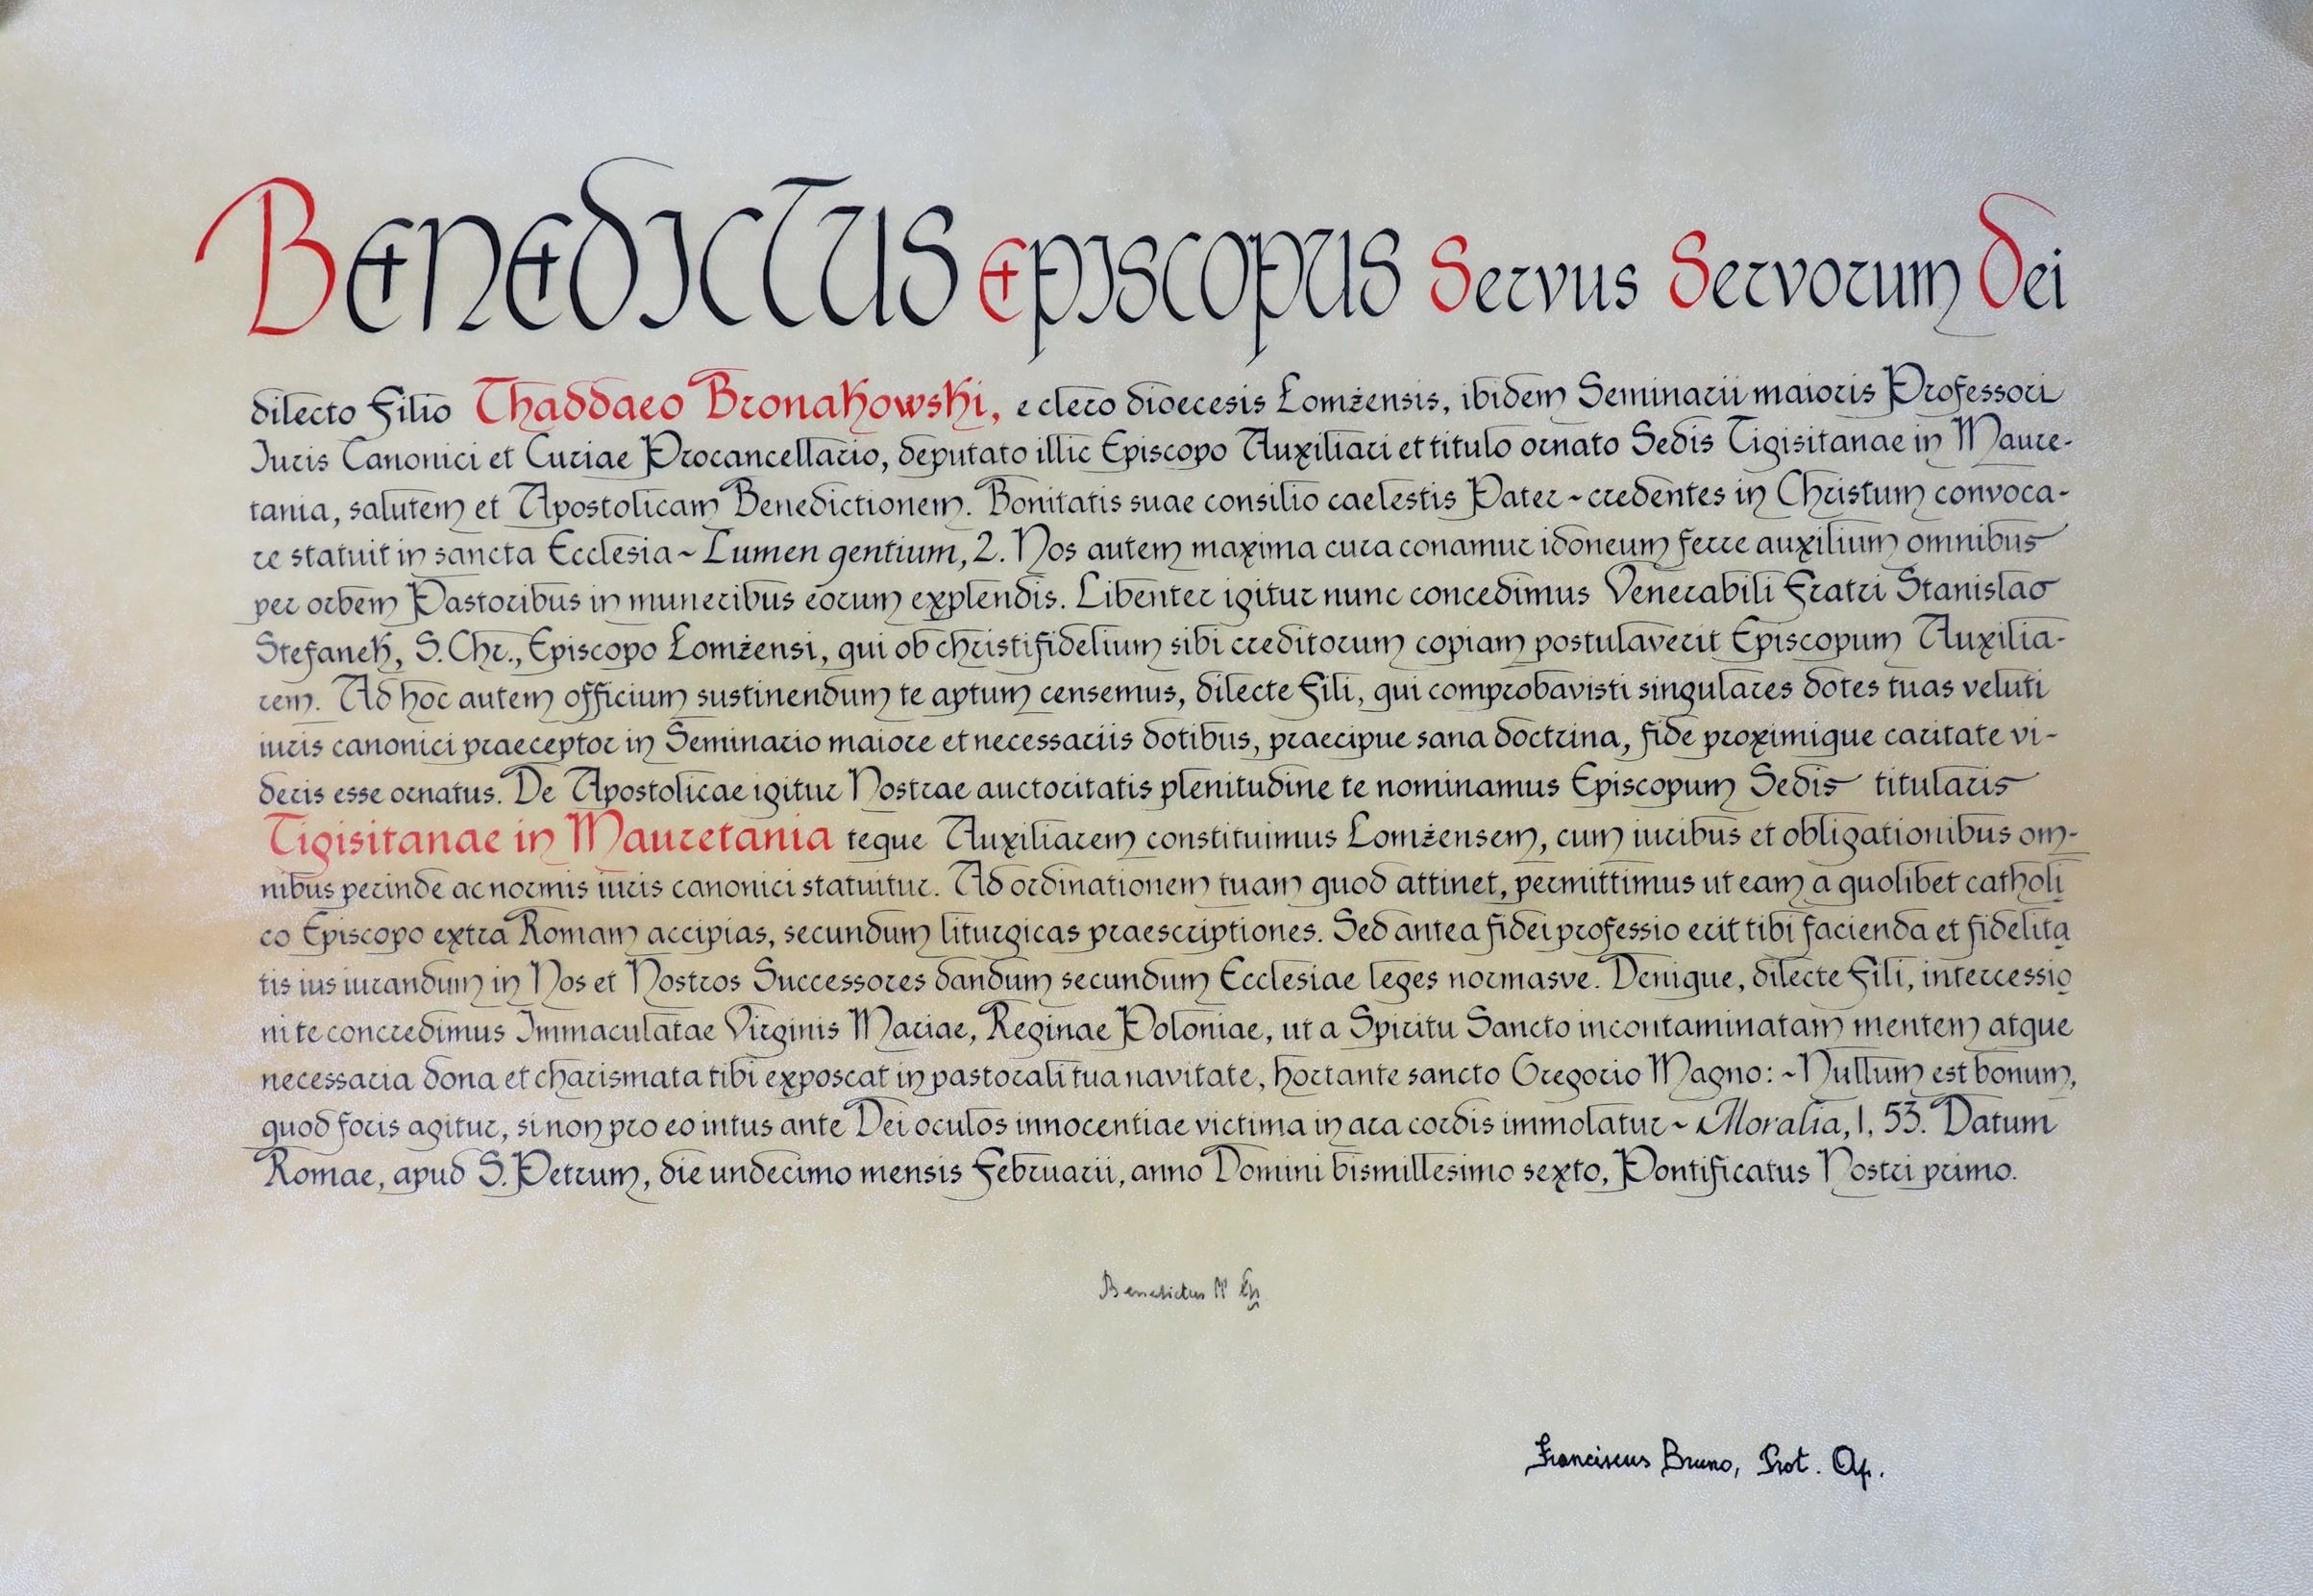 Benedictus Episcopus Servus Servorum Dei
dilecto Filio Thaddaeo Bronakowski, e clero dioecesis Lomżensis, ibidem Seminarii maioris Professori
Iuris Canonici et Curiae Procancellario, deputato illic Episcopo Auxiliari et titulo ornato Sedis Tigisitanae in Maure-
tania, salutem et Apostolicam Benedictionem. Bonitatis suae consilio caelestis Pater ~ credentes in Christum convoca-
re statuit in sancta Ecclesia ~ Lumen gentium, 2. Nos autem maxima cura conamur idoneum ferre auxilium omnibus
per orbem Pastoribus in muneribus eorum explendis. Libenter igitur nunc concedimus Venerabili Fratri Stanislao
Stefanek, S. Chr., Episcopo Lomżensi, qui ob christifidelium sibi creditorum copiam postulaverit Episcopum Auxilia-
rem. Ad hoc autem officium sustinendum te aptum censemus, dilecte Fili, qui comprobavisti singulares dotes tuas veluti
iuris canonici praeceptor in Seminario maiore et necessariis dotibus, praecipue sana doctrina, fide proximique caritate vi-
deris esse ornatus. De Apostolicae igitur Nostrae auctoritatis plenitudine te nominamus Episcopum Sedis titularis
Tigisitanae in Mauretania teque Auxiliarem constituimus Lomżensem, cum iuribus et obligationibus om-
nibus perinde ac normis iuris canonici statuitur. Ad ordinationem tuam quod attinet, permittimus ut eam a quolibet catholi
co Episcopo extra Romam accipias, secundum liturgicas praescriptiones. Sed antea fidei professio erit tibi facienda et fidelita
tis ius iurandum in Nos et Nostros Successores dandum secundum Ecclesiae leges normasve. Denique, dilecte Fili, intercessio
ni te concredimus Immaculatae Virginis Mariae, Reginae Poloniae, ut a Spiritu Sancto incontaminatam mentem atque
necessaria dona et charismata tibi exposcat in pastorali tua navitate, hortante sancto Gregorio Magno: ~ Nullum est bonum,
quod foris agitur, si non pro eo intus ante Dei oculos innocentiae victima in ara cordis immolatur ~ Moralia, 1, 53. Datum
Romae, apud S. Petrum, die undecimo mensis Februarii, anno Domini bismillesimo sexto, Pontificatus Nostri primo.
Benedictus PP Ep
Franciscus Bruno, Prot. Ap.